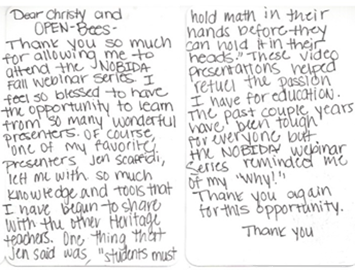 Dear Christy and
OPEN-Bees-
Thank you so much
for allowing me to
attend the NOBIDA
Fall webinar series. I
feel so blessed to have
the opportunity to learn
from so many wonderful
presenters. Of course,
one of my favorite
presenters Jen Scaffidi,
left me with so much
knowledge and tools that
I have begun to share
with the other Heritage
teachers. One thing that
Jen said was, "students must
hold math in their
hands before they
can hold it in their
heads." These video
presentations helped
refuel the passion
I have for education.
The past couple years
have been tough
for everyone but
the NOBIDA webinar
series reminded me
of my "why!"
Thank you again
for this opportunity.
Thank you